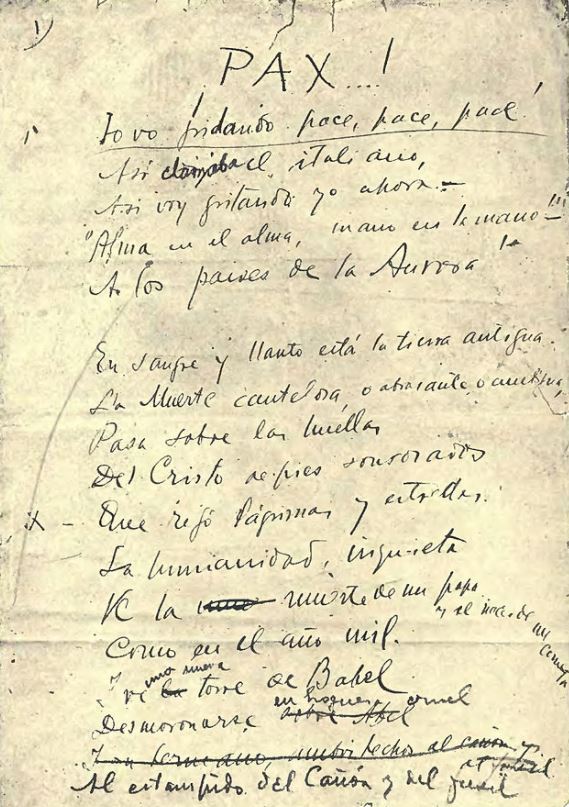 1)
PAX...!
Io vo gridando pace, pace, pace!
Así clamaba el italiano,
Así voy gritando yo ahora.=
"Alma en el alma, mano en la mano"
A los países de la Aurora!
En sangre y llanto está la tierra antigua.
La Muerte cautelosa, o abrasante, o ambigua,
Pasa sobre las huellas
Del Cristo de pies sonrosados
X - Que regó lágrimas y estrellas.
La humanidad, inquieta
Ve la muerte de un papa y el nace de un cometa
Como en el año mil.
Y ve una nueva torre de Babel
Desmoronarse en hoguera cruel
Al estampido del Cañón y del fusil